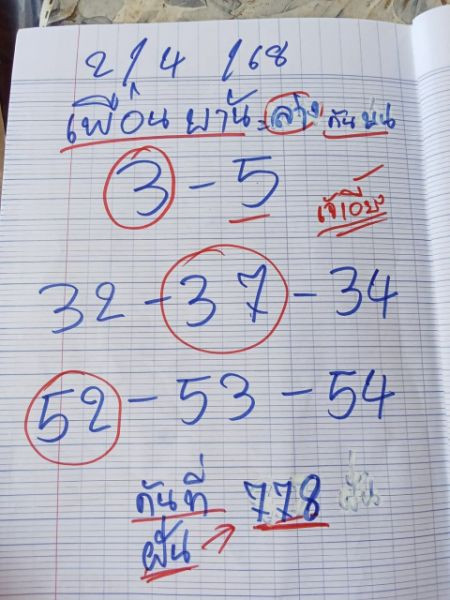 2/4/68
เพื่อน บานี = ล่าง กันบน
3 - 5
เจ๊เอียง
32 - 37 - 34
52 - 53 - 54
กันที่ 778
ฝัน